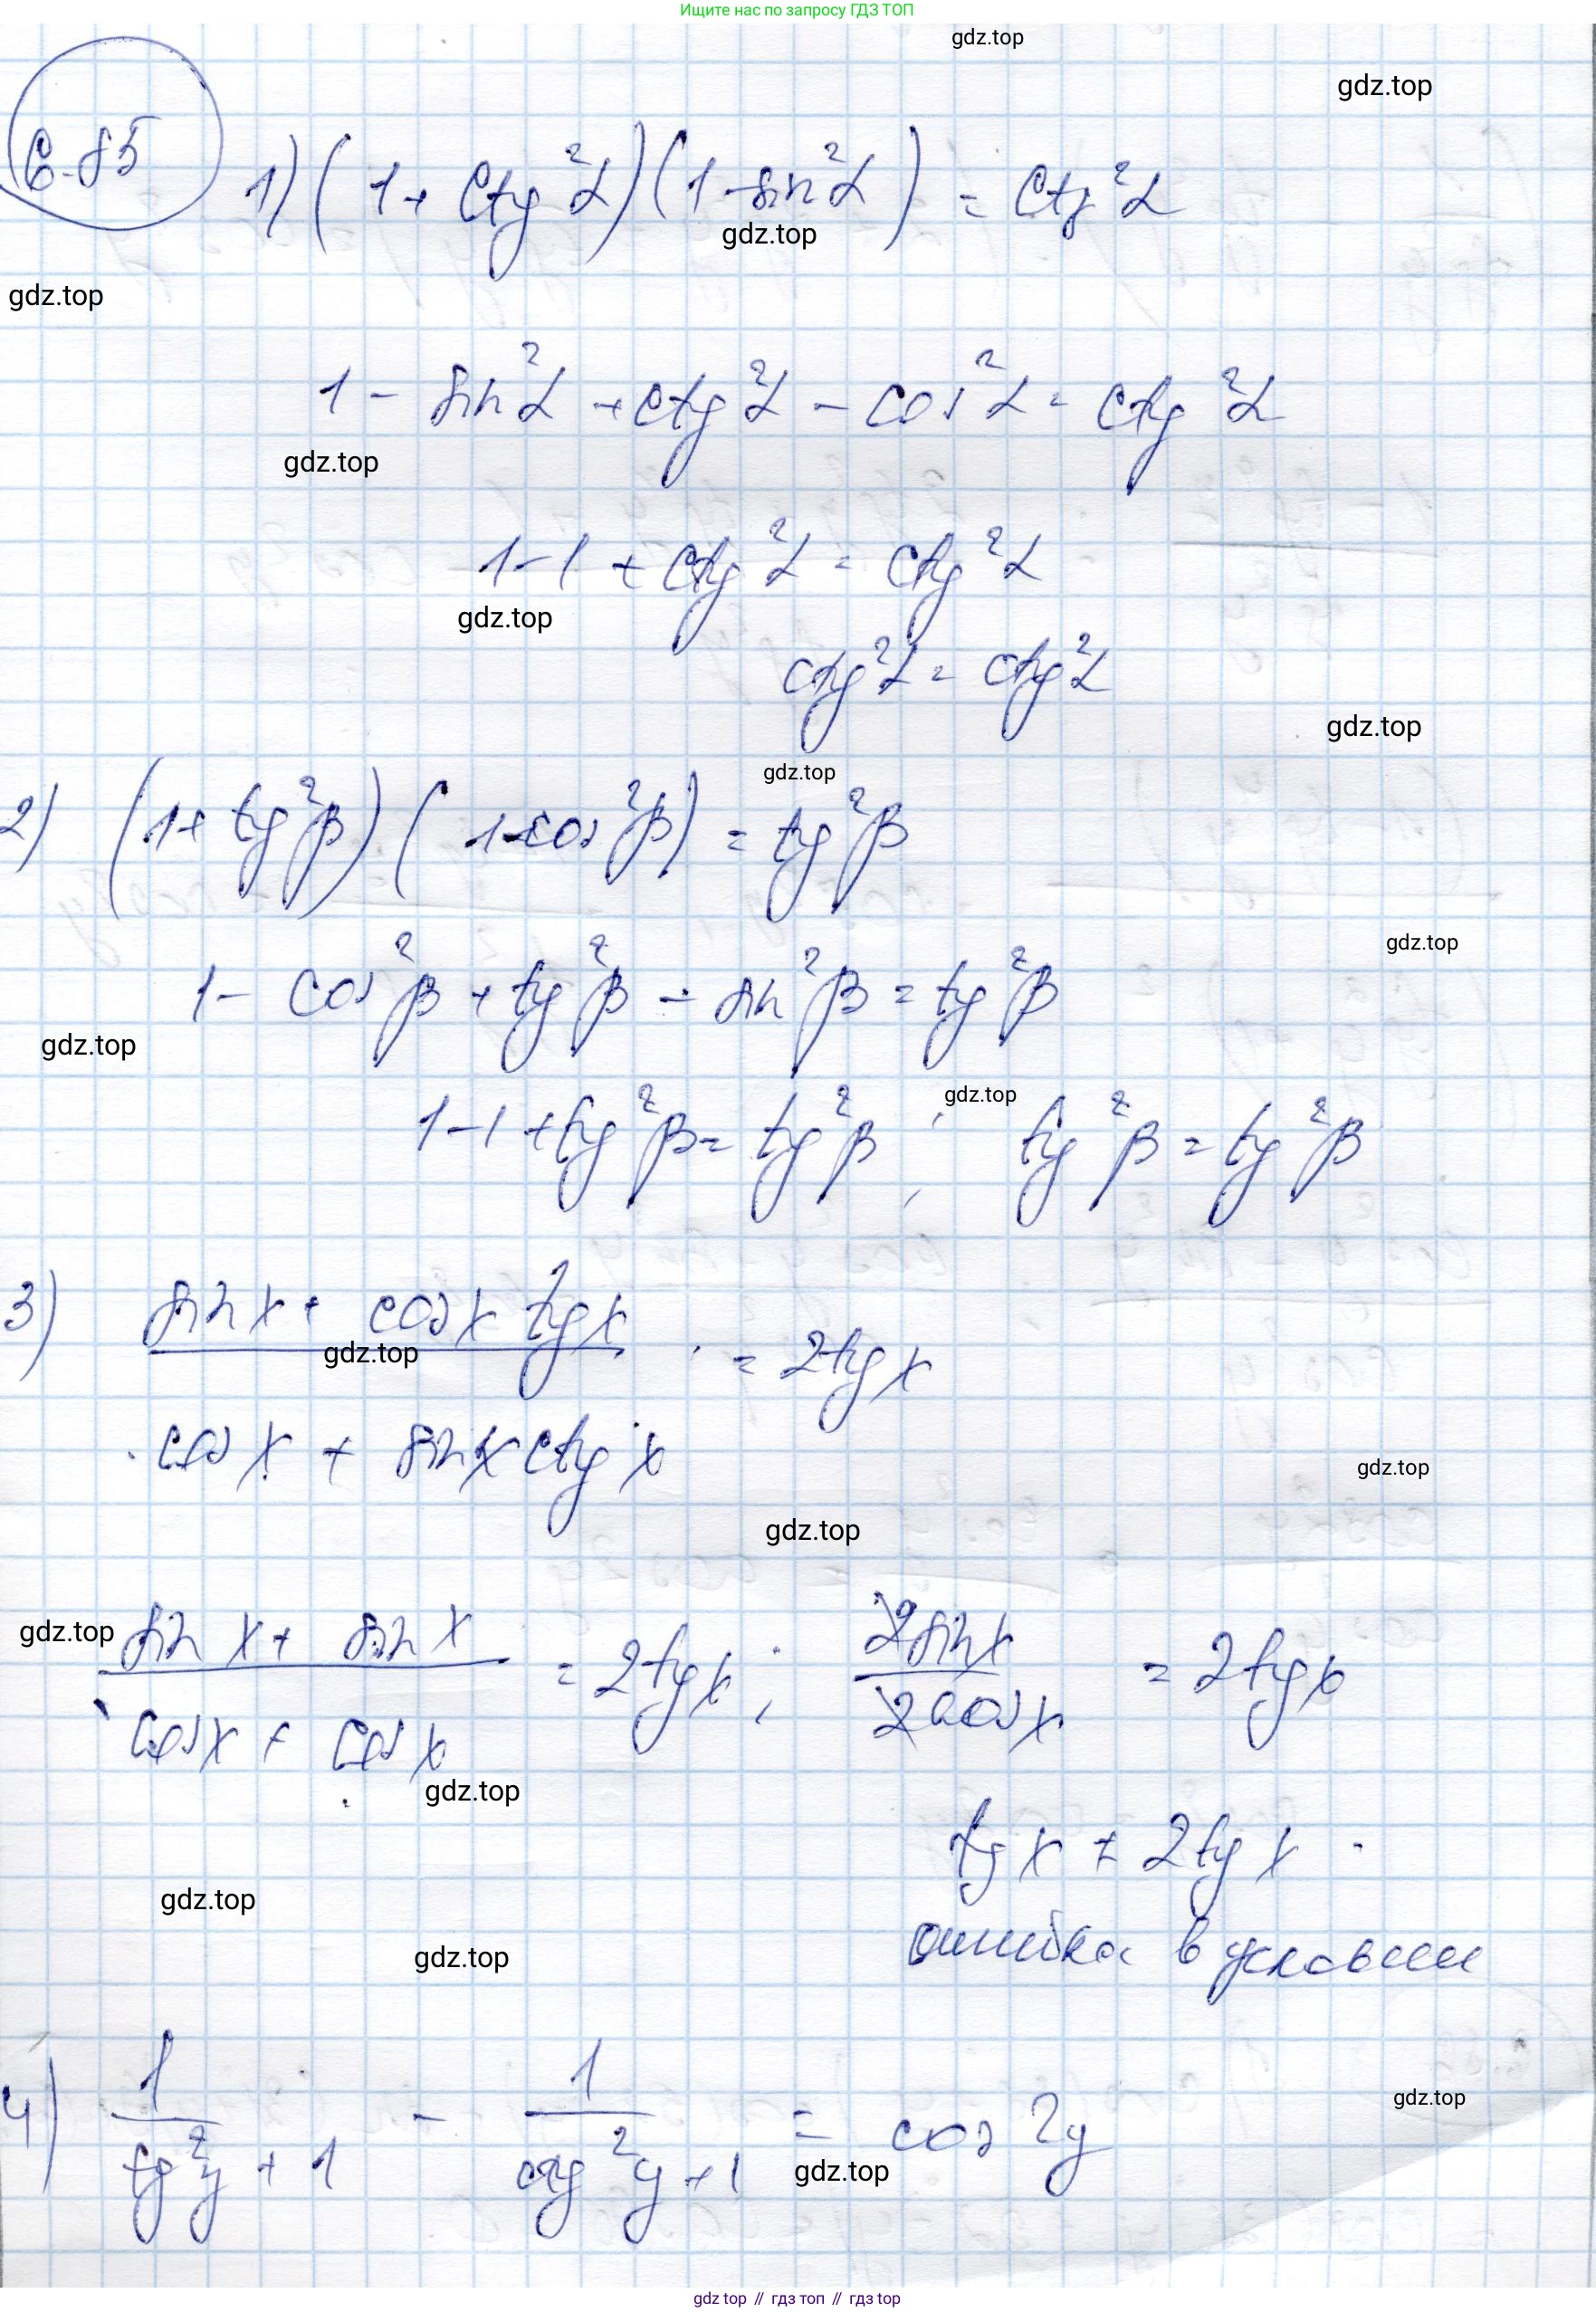 Ищите нас по запросу ГДЗ ТОП
gdz.top
gdz.top
6.85
1) (1 + ctg²α)(1 - sin²α) = ctg²α
gdz.top
gdz.top
1 - sin²α + ctg²α - cos²α = ctg²α
gdz.top
1-1 + ctg²α = ctg²α
gdz.top
ctg²α = ctg²α
gdz.top
gdz.top
2) (1 + tg²β)(1 - cos²β) = tg²β
gdz.top
1 - cos²β + tg²β - sin²β = tg²β
gdz.top
gdz.top
1-1 + tg²β = tg²β ; tg²β = tg²β
3) (sin x + cos x tg x) / (cos x + sin x ctg x) = 2tg x
gdz.top
gdz.top
gdz.top
(sin x + sin x) / (cos x + cos x) = 2tg x ; 2sin x / 2cos x = 2tg x
gdz.top
gdz.top
tg x ≠ 2tg x
gdz.top
ошибка в условии
gdz.top
4) 1 / (tg²y + 1) - 1 / (ctg²y + 1) = cos 2y
gdz.top
gdz.top
gdz top // гдз топ // гдз top